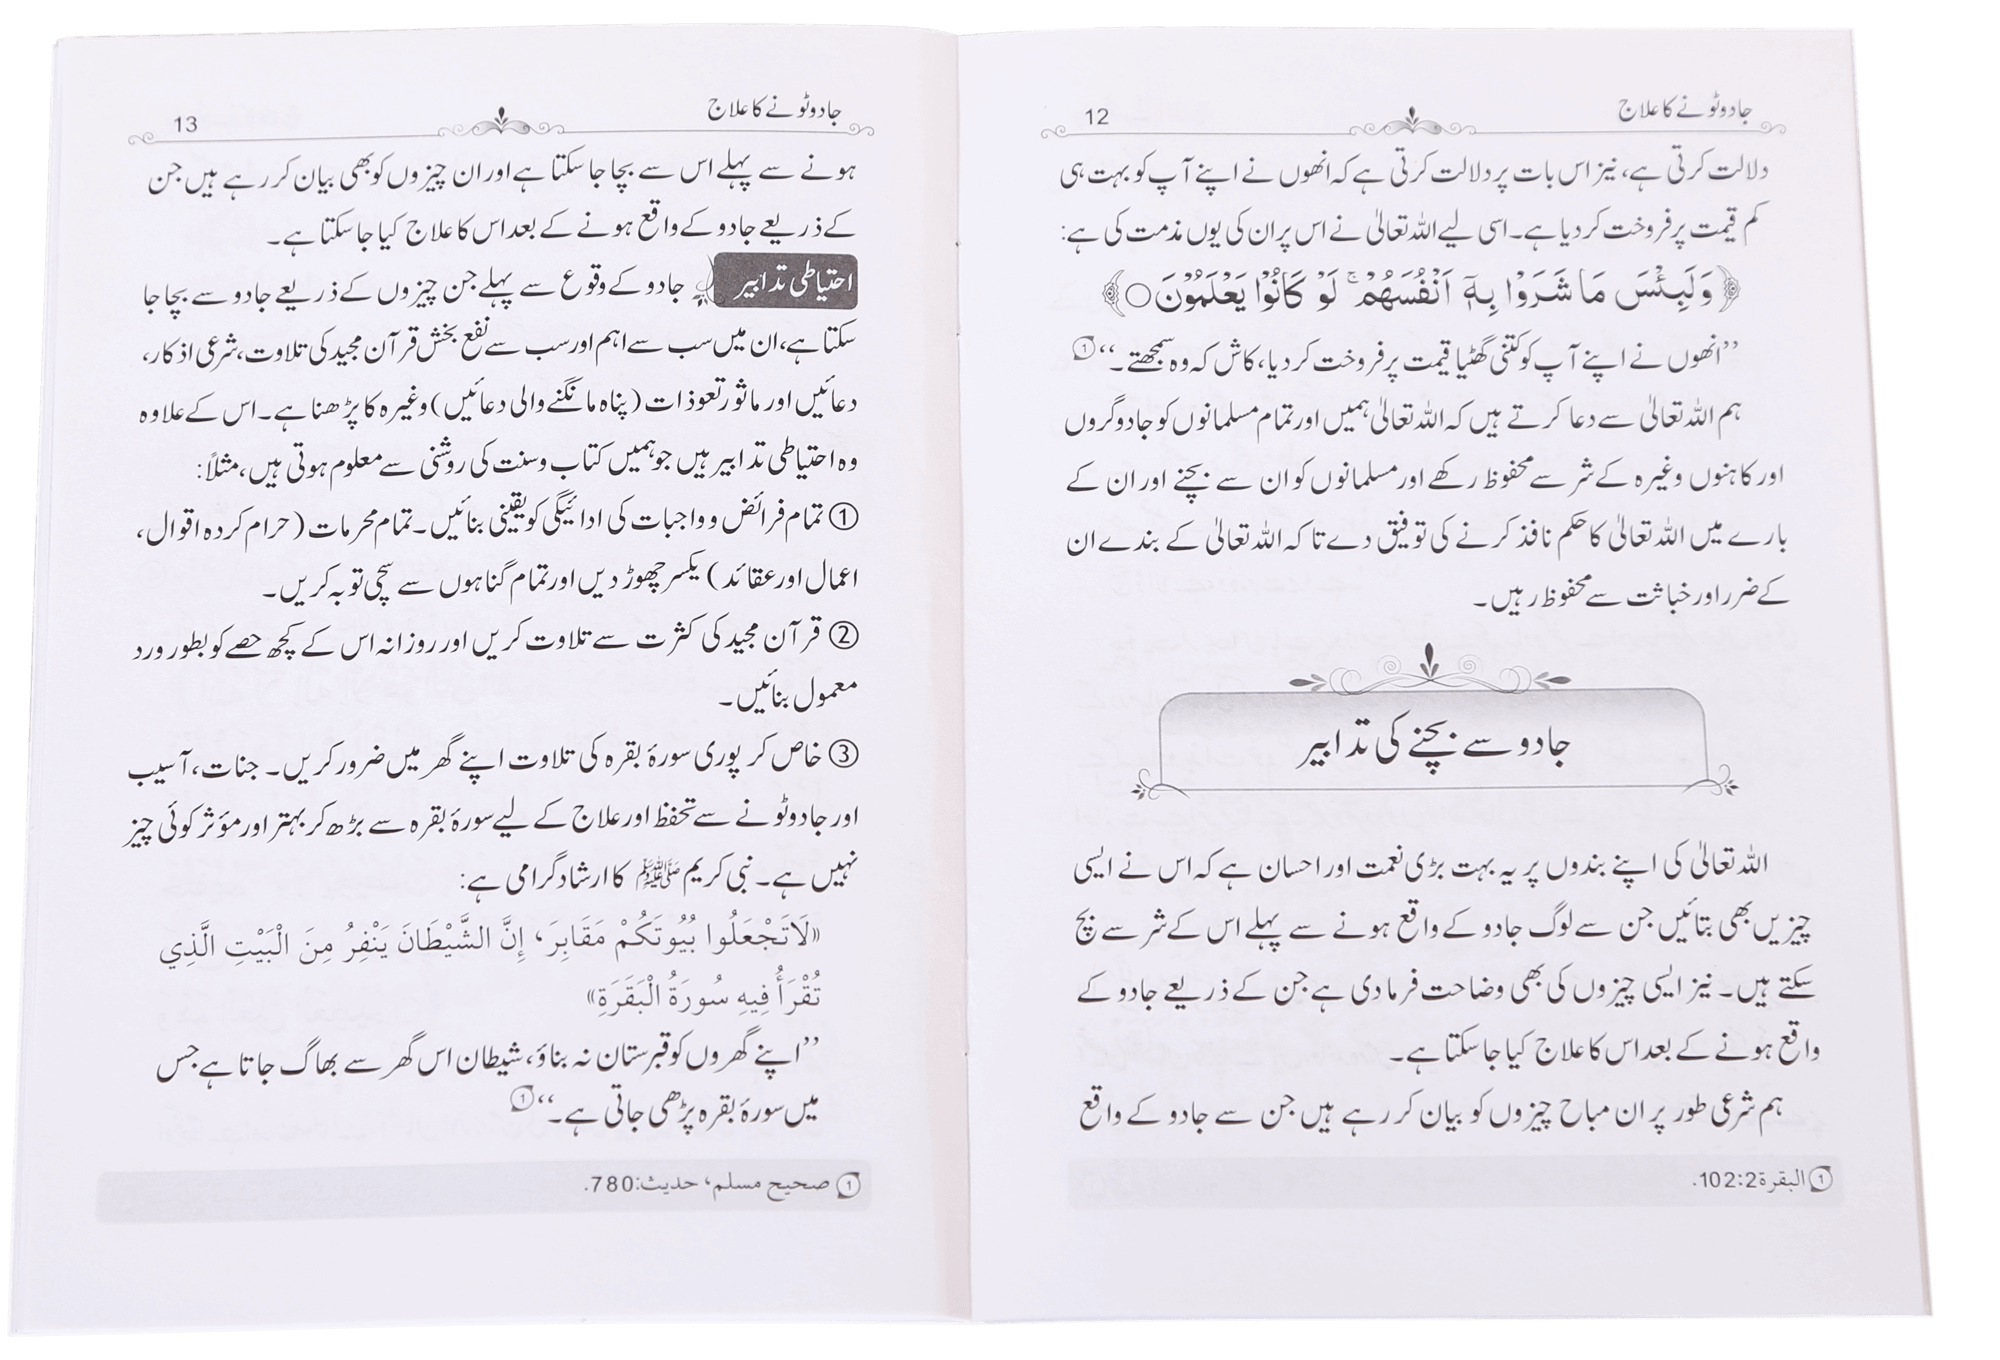 جادو ٹونے کا علاج 12
دلالت کرتی ہے، نیز اس بات پر دلالت کرتی ہے کہ انھوں نے اپنے آپ کو بہت ہی
کم قیمت پر فروخت کر دیا ہے۔ اسی لیے اللہ تعالیٰ نے اس پر ان کی یوں مذمت کی ہے:
﴿وَلَبِئْسَ مَا شَرَوْا بِهٖٓ اَنْفُسَهُمْ ۚ لَوْ كَانُوْا يَعْلَمُوْنَ○﴾
’’انھوں نے اپنے آپ کو کتنی گھٹیا قیمت پر فروخت کر دیا، کاش کہ وہ سمجھتے۔‘‘①
ہم اللہ تعالیٰ سے دعا کرتے ہیں کہ اللہ تعالیٰ ہمیں اور تمام مسلمانوں کو جادوگروں
اور کاہنوں وغیرہ کے شر سے محفوظ رکھے اور مسلمانوں کو ان سے بچنے اور ان کے
بارے میں اللہ تعالیٰ کا حکم نافذ کرنے کی توفیق دے تا کہ اللہ تعالیٰ کے بندے ان
کے ضرر اور خباثت سے محفوظ رہیں۔
جادو سے بچنے کی تدابیر
اللہ تعالیٰ کی اپنے بندوں پر یہ بہت بڑی نعمت اور احسان ہے کہ اس نے ایسی
چیزیں بھی بتائیں جن سے لوگ جادو کے واقع ہونے سے پہلے اس کے شر سے بچ
سکتے ہیں۔ نیز ایسی چیزوں کی بھی وضاحت فرما دی ہے جن کے ذریعے جادو کے
واقع ہونے کے بعد اس کا علاج کیا جا سکتا ہے۔
ہم شرعی طور پر ان مباح چیزوں کو بیان کر رہے ہیں جن سے جادو کے واقع
① البقرة 102:2.
جادو ٹونے کا علاج 13
ہونے سے پہلے اس سے بچا جا سکتا ہے اور ان چیزوں کو بھی بیان کر رہے ہیں جن
کے ذریعے جادو کے واقع ہونے کے بعد اس کا علاج کیا جا سکتا ہے۔
احتیاطی تدابیر جادو کے وقوع سے پہلے جن چیزوں کے ذریعے جادو سے بچا جا
سکتا ہے، ان میں سب سے اہم اور سب سے نفع بخش قرآن مجید کی تلاوت، شرعی اذکار،
دعائیں اور ماثور تعوذات (پناہ مانگنے والی دعائیں) وغیرہ کا پڑھنا ہے۔ اس کے علاوہ
وہ احتیاطی تدابیر ہیں جو ہمیں کتاب و سنت کی روشنی سے معلوم ہوتی ہیں، مثلاً:
① تمام فرائض و واجبات کی ادائیگی کو یقینی بنائیں۔ تمام محرمات (حرام کردہ اقوال،
اعمال اور عقائد) یکسر چھوڑ دیں اور تمام گناہوں سے سچی توبہ کریں۔
② قرآن مجید کی کثرت سے تلاوت کریں اور روزانہ اس کے کچھ حصے کو بطور ورد
معمول بنائیں۔
③ خاص کر پوری سورۂ بقرہ کی تلاوت اپنے گھر میں ضرور کریں۔ جنات، آسیب
اور جادو ٹونے سے تحفظ اور علاج کے لیے سورۂ بقرہ سے بڑھ کر بہتر اور مؤثر کوئی چیز
نہیں ہے۔ نبی کریم ﷺ کا ارشاد گرامی ہے:
«لَا تَجْعَلُوا بُيُوتَكُمْ مَقَابِرَ، إِنَّ الشَّيْطَانَ يَنْفِرُ مِنَ الْبَيْتِ الَّذِي
تُقْرَأُ فِيهِ سُورَةُ الْبَقَرَةِ»
’’اپنے گھروں کو قبرستان نہ بناؤ، شیطان اس گھر سے بھاگ جاتا ہے جس
میں سورۂ بقرہ پڑھی جاتی ہے۔‘‘①
① صحیح مسلم، حدیث:780.